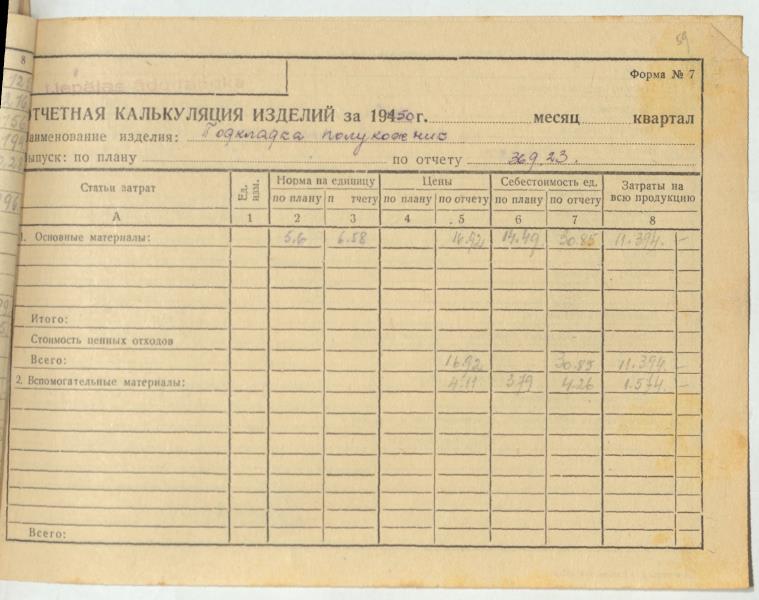 59
Форма № 7
ОТЧЕТНАЯ КАЛЬКУЛЯЦИЯ ИЗДЕЛИЙ за 1950 г. месяц квартал
Наименование изделия: Подкладка полукожник
Выпуск: по плану по отчету 369.23.
Статьи затрат Ед. изм. Норма на единицу Цены Себестоимость ед. Затраты на всю продукцию
по плану п тчету по плану по отчету по плану по отчету
А 1 2 3 4 5 6 7 8
1. Основные материалы: 5.6 6.58 16.92 14.49 30.85 11.394. —
Итого:
Стоимость ценных отходов
Всего: 16.92 30.85 11.394. —
2. Вспомогательные материалы: 4.11 3.79 4.26 1.574. —
Всего: